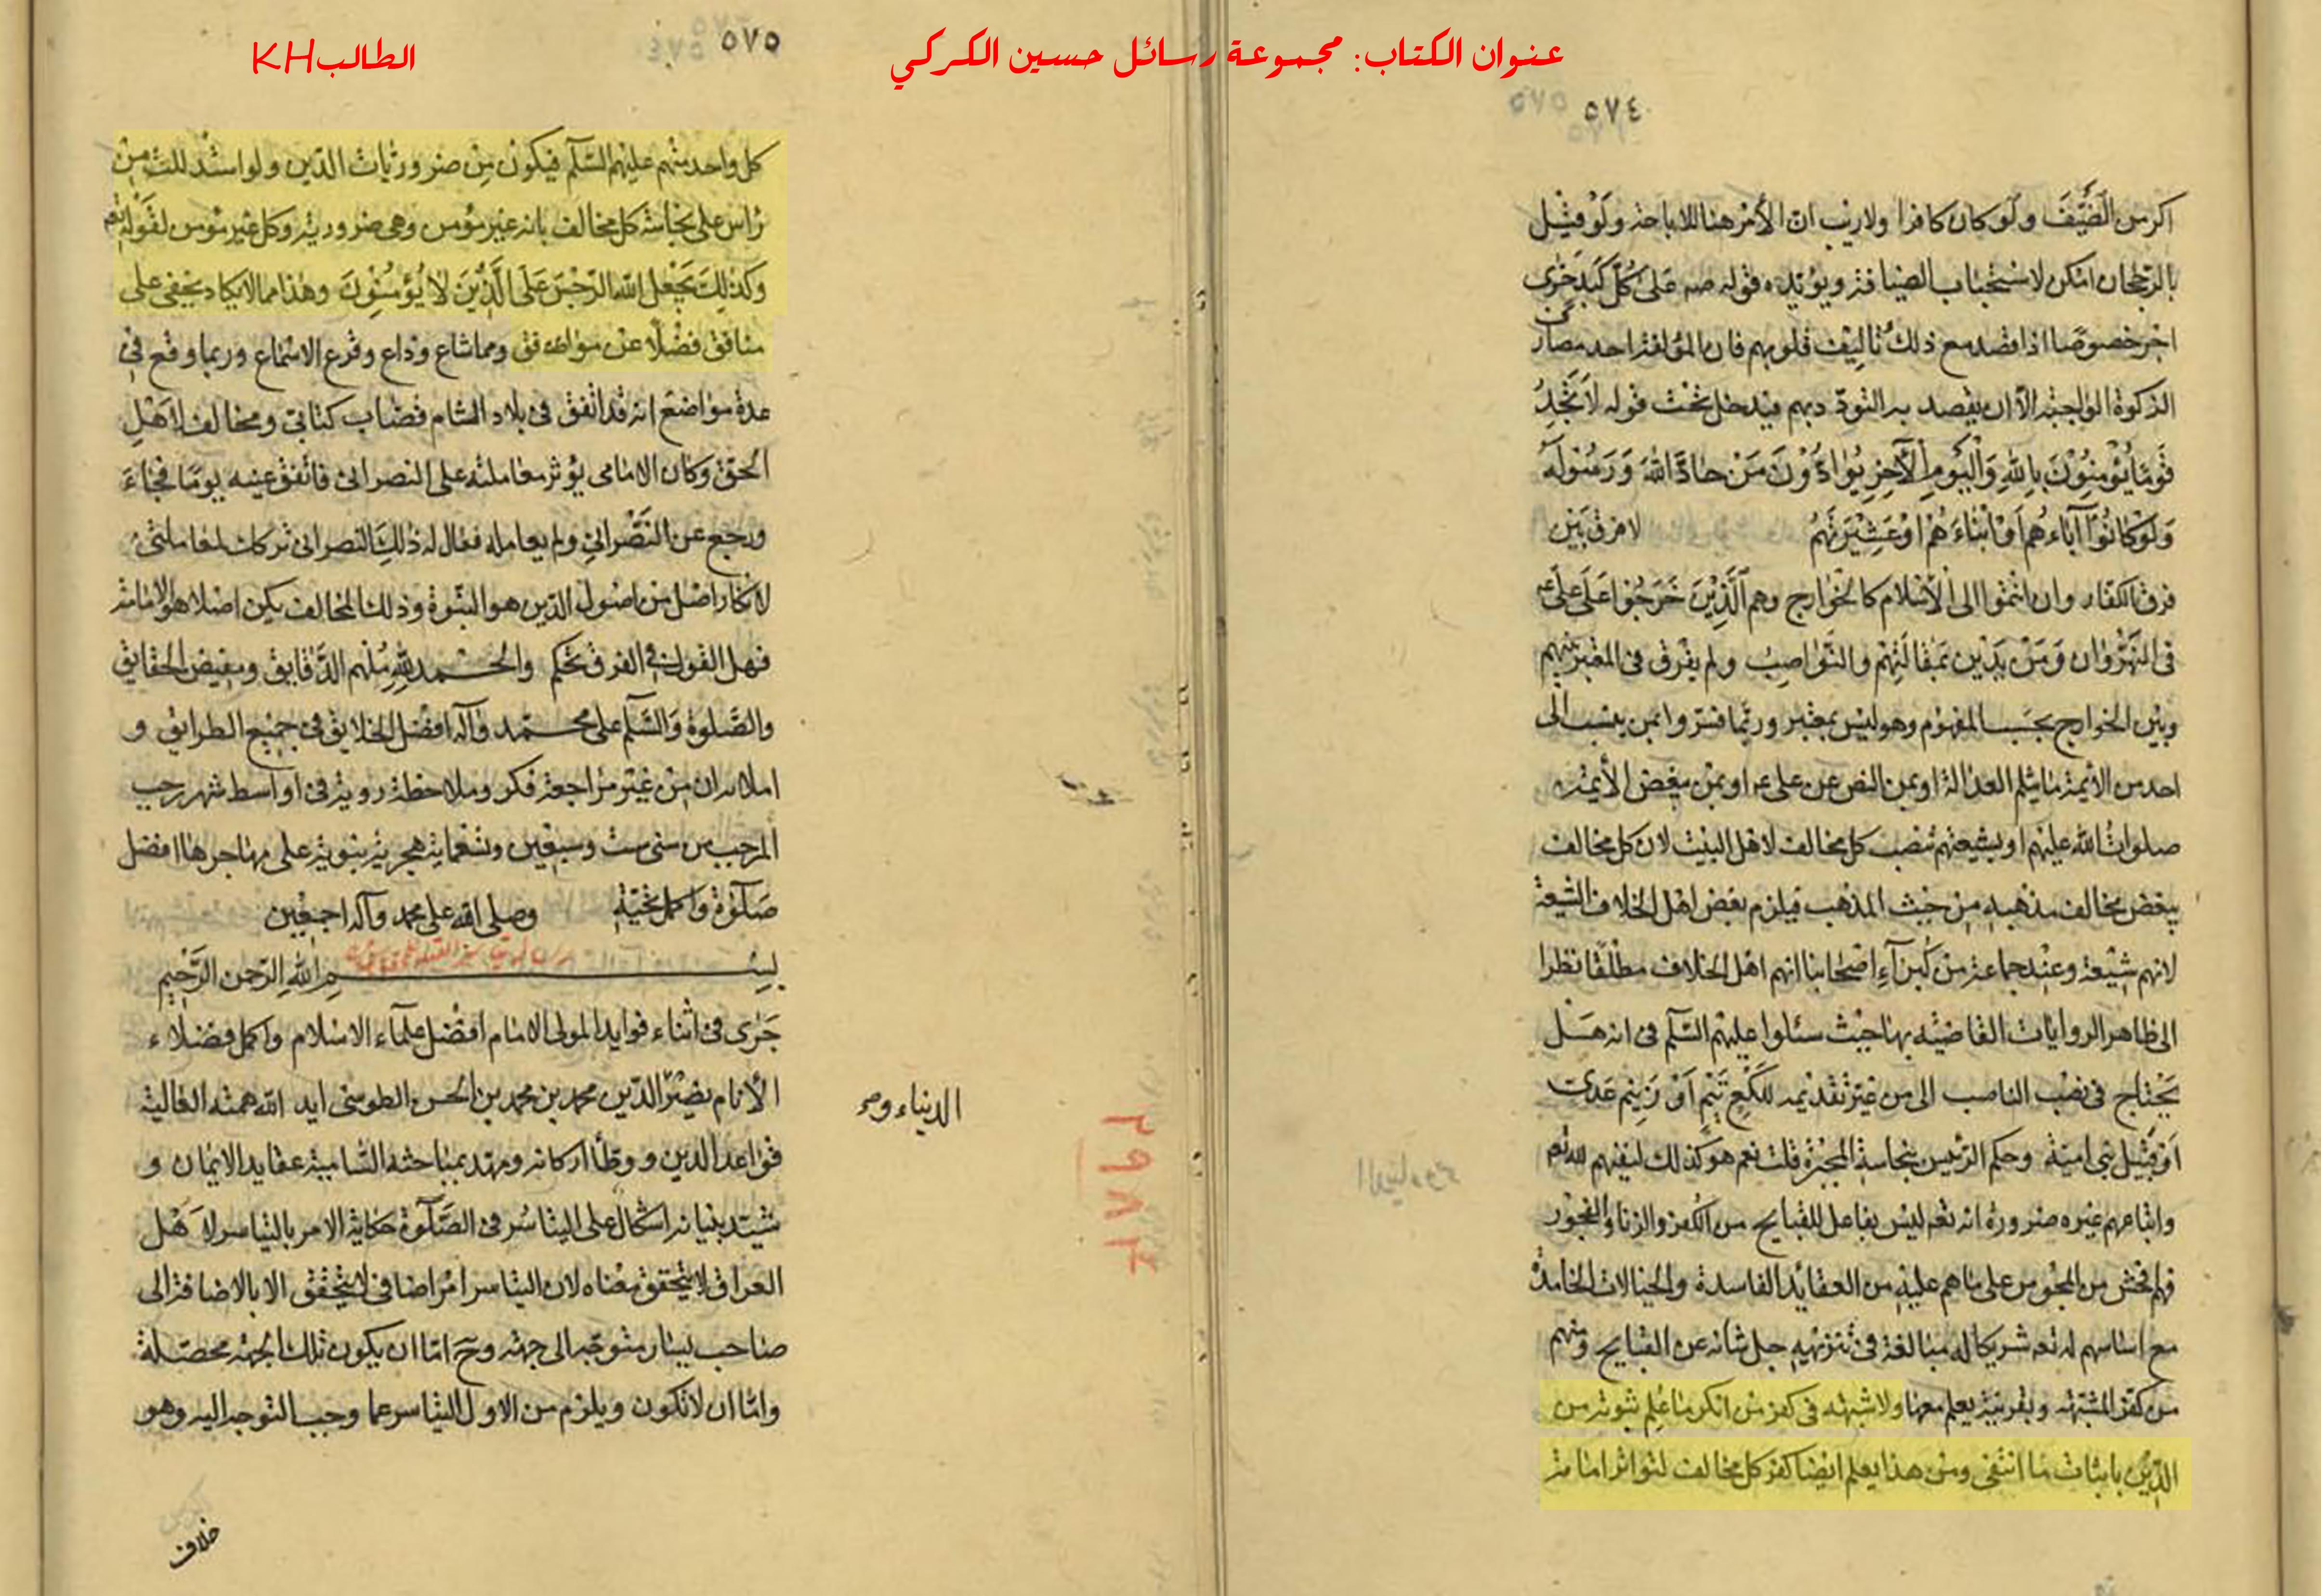 عنوان الكتاب: مجموعة رسائل حسين الكركي
الطالب KH
٥٧٤
اكرموا الضَّيْفَ ولو كان كافرا ولا ريب ان الأمر هنا للاباحة ولو قيل
بالرجحان امكن لاستحباب الضيافة ويؤيده قوله صه على كل كبد حرى
اجر خصوصا اذا قصد مع ذلك تاليف قلوبهم فان المؤلفة احد مصارف
الزكوة الواجبة الا ان يقصد به التودد بهم فيدخل تحت قوله لا تَجِدُ
قَوْمًا يُؤْمِنُونَ بِاللهِ وَالْيَوْمِ الْآخِرِ يُوَادُّونَ مَنْ حَادَّ اللهَ وَرَسُولَهُ
وَلَوْ كَانُوا آبَاءَهُمْ أَوْ أَبْنَاءَهُمْ أَوْ عَشِيرَتَهُمْ لا فرق بين
فرق الكفار وان انتموا الى الاسلام كالخوارج وهم الَّذِينَ خَرَجُوا عَلَى علي عم
في النهروان وَمَنْ يدين بمقالتهم والنواصب ولم يفرق في المعتبر بينهم
وبين الخوارج بحسب المفهوم وهو ليس بمعتبر وربما فسروا بمن ينسب الى
احد من الأيمة ما يثلم العدالة او بمن النص عن علي عم او بمن يبغض الأيمة
صلوات الله عليهم او بشيعتهم نصب كل مخالف لاهل البيت لان كل مخالف
يبغض مخالف مذهبه من حيث المذهب فيلزم بغض اهل الخلاف الشيعة
لانهم شيعة وعند جماعة من كبراء اصحابنا انهم اهل الخلاف مطلقا نظرا
الى ظاهر الروايات القاضية بها حيث سئلوا عليهم السلم في انه هل
يحتاج في نصب الناصب الى من غير تقديمه للكع تيم او زنيم عدى
او قيل بني امية وحكم الرئيس بنجاسة المجبرة قلت نعم هو كذلك لنفيهم لله تعم
واتباعهم غيره ضرورة انه تعم ليس بفاعل للقبايح من الكفر والزنا والفجور
فهم افحش من المجوس على ما هم عليه من العقائد الفاسدة والخيالات الخامدة
مع اساسهم له تعم شريكا له مبالغة في تنزيهه جل شانه عن القبايح ومنهم
من كفر المشبهة وبقرينة يعلم معها ولا شبهة في كفر من انكر ما علم ثبوته من
الدين باثبات ما انتفى ومن هذا يعلم ايضا كفر كل مخالف لتواتر امامة
٥٧٥
كل واحد منهم عليهم السلم فيكون من ضروريات الدين ولو استدللت من
راس على نجاسة كل مخالف بانه غير مؤمن وهي ضرورية وكل غير مؤمن لقوله تعم
وكذلك يَجْعَلُ اللهُ الرِّجْسَ عَلَى الَّذِينَ لَا يُؤْمِنُونَ وهذا مما لا يكاد يخفى على
منافق فضلا عن موافق ومما شاع وذاع وقرع الاسماع وربما وقع في
عدة مواضع انه قد اتفق في بلاد الشام قصاب كتابي ومخالف لاهل
الحق وكان الامامي يؤثر معاملته على النصراني فاتفق غيبته يوما فجاء
ورجع عن النصراني ولم يعامله فقال له ذلك النصراني تركك لمعاملتي
لانكار اصل من اصول الدين هو النبوة وذلك المخالف يكن اصلا هو الامامة
فهل القول في الفرق تحكم والحمد لله ملهم الدقايق ومفيض الحقايق
والصلوة والسلم على محمد وآله افضل الخلايق في جميع الطرايق و
املاه بدران من غير مراجعة فكر وملاحظة روية في اواسط شهر رجب
المرجب من سنى ست وسبعين وتسعماية هجرية نبوية على مهاجرها افضل
صلوة واكمل تحية وصلى الله على محمد وآله اجمعين
بسم الله الرحمن الرحيم
جرى في اثناء فوايد المولى الامام افضل علماء الاسلام واكمل فضلاء
الأنام نصير الدين محمد بن محمد بن الحسن الطوسى ايد الله همته العالية
قواعد الدين ووطأ اركانه ومهد بمباحثه السامية عقايد الايمان و
شيد بنيانه اشكال على التياسر في الصلوة حكاية الامر بالتياسر لاهل
العراق لا يتحقق معناه لان التياسر امر اضافى لا يتحقق الا بالاضافة الى
صاحب يسار متوجه الى جهة وح اما ان يكون تلك الجهة محصلة
واما ان لا تكون ويلزم من الاول التياسر عما وجب التوجه اليه وهو
خلاف
الدنياء وم
٢٩٨٢٤